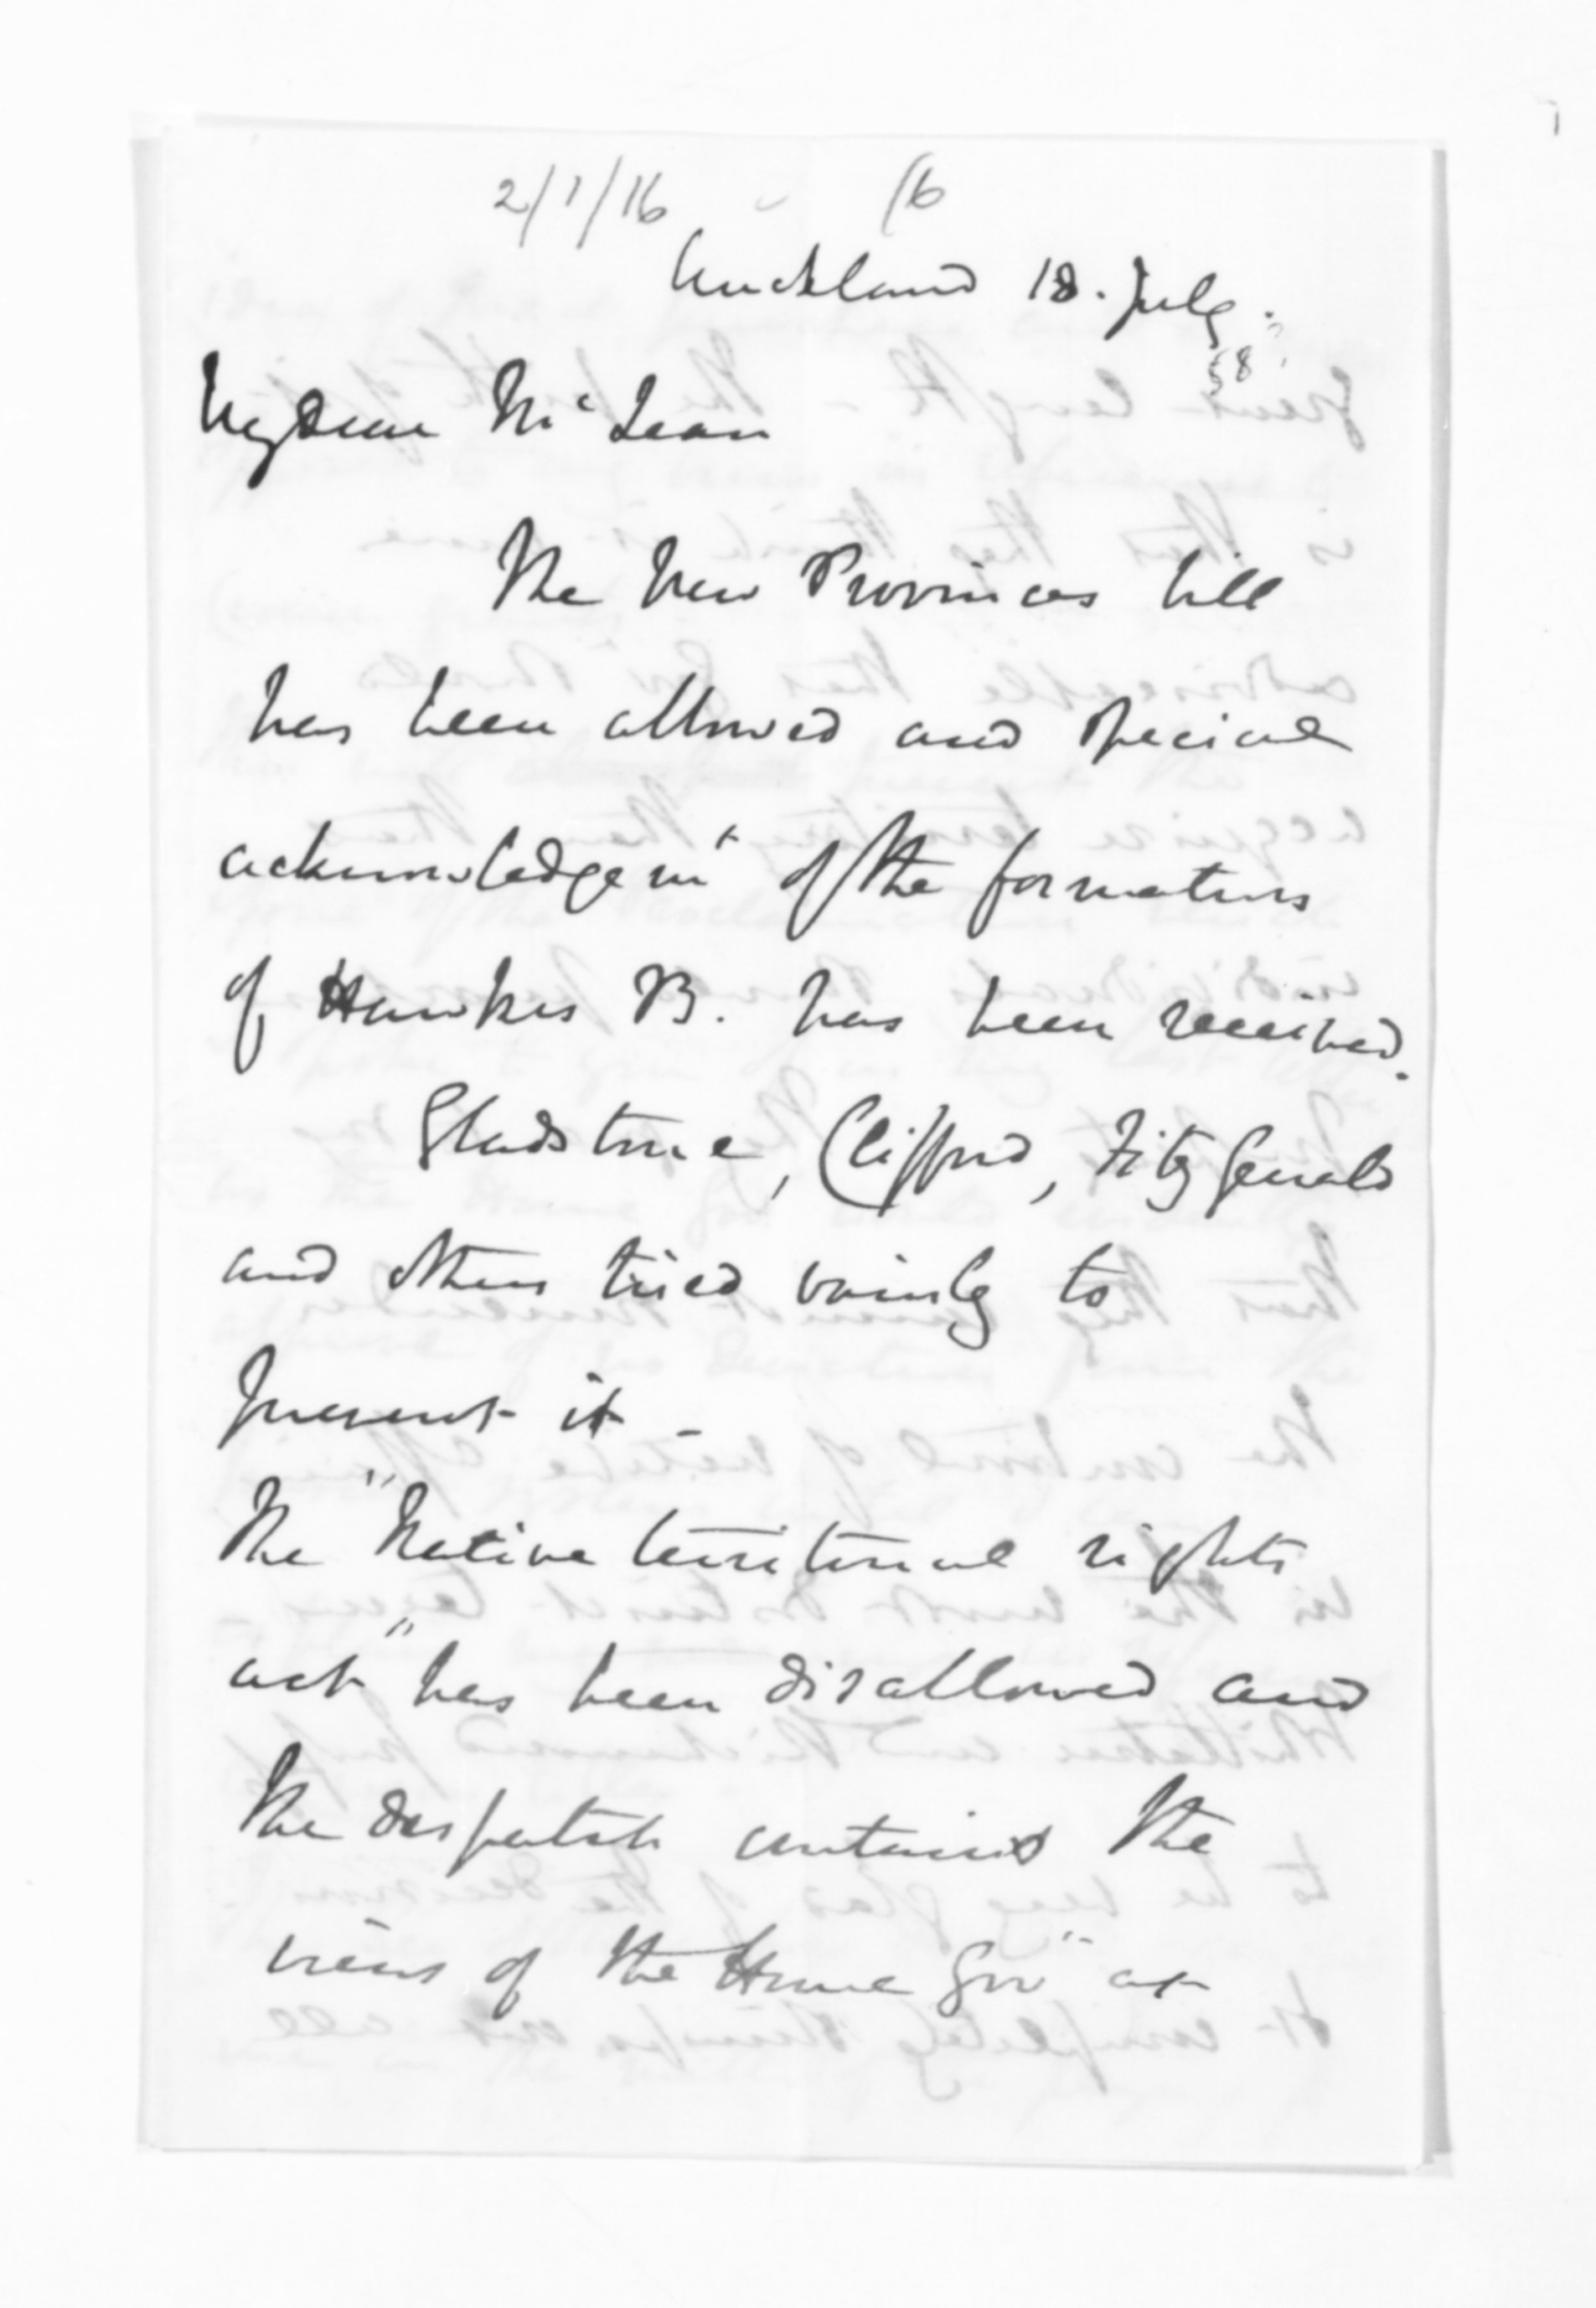 2/1/16 16
Auckland 18. July.
58
My dear McLean
The New Provinces bill
has been allowed and special
acknowledgemt of the formation
of Hawkes B. has been received.
Gladstone, Clifford, Fitzgerald
and others tried vainly to
prevent it -
The "Native territorial rights
act" has been disallowed and
the despatch contains the
views of the Home Govt at